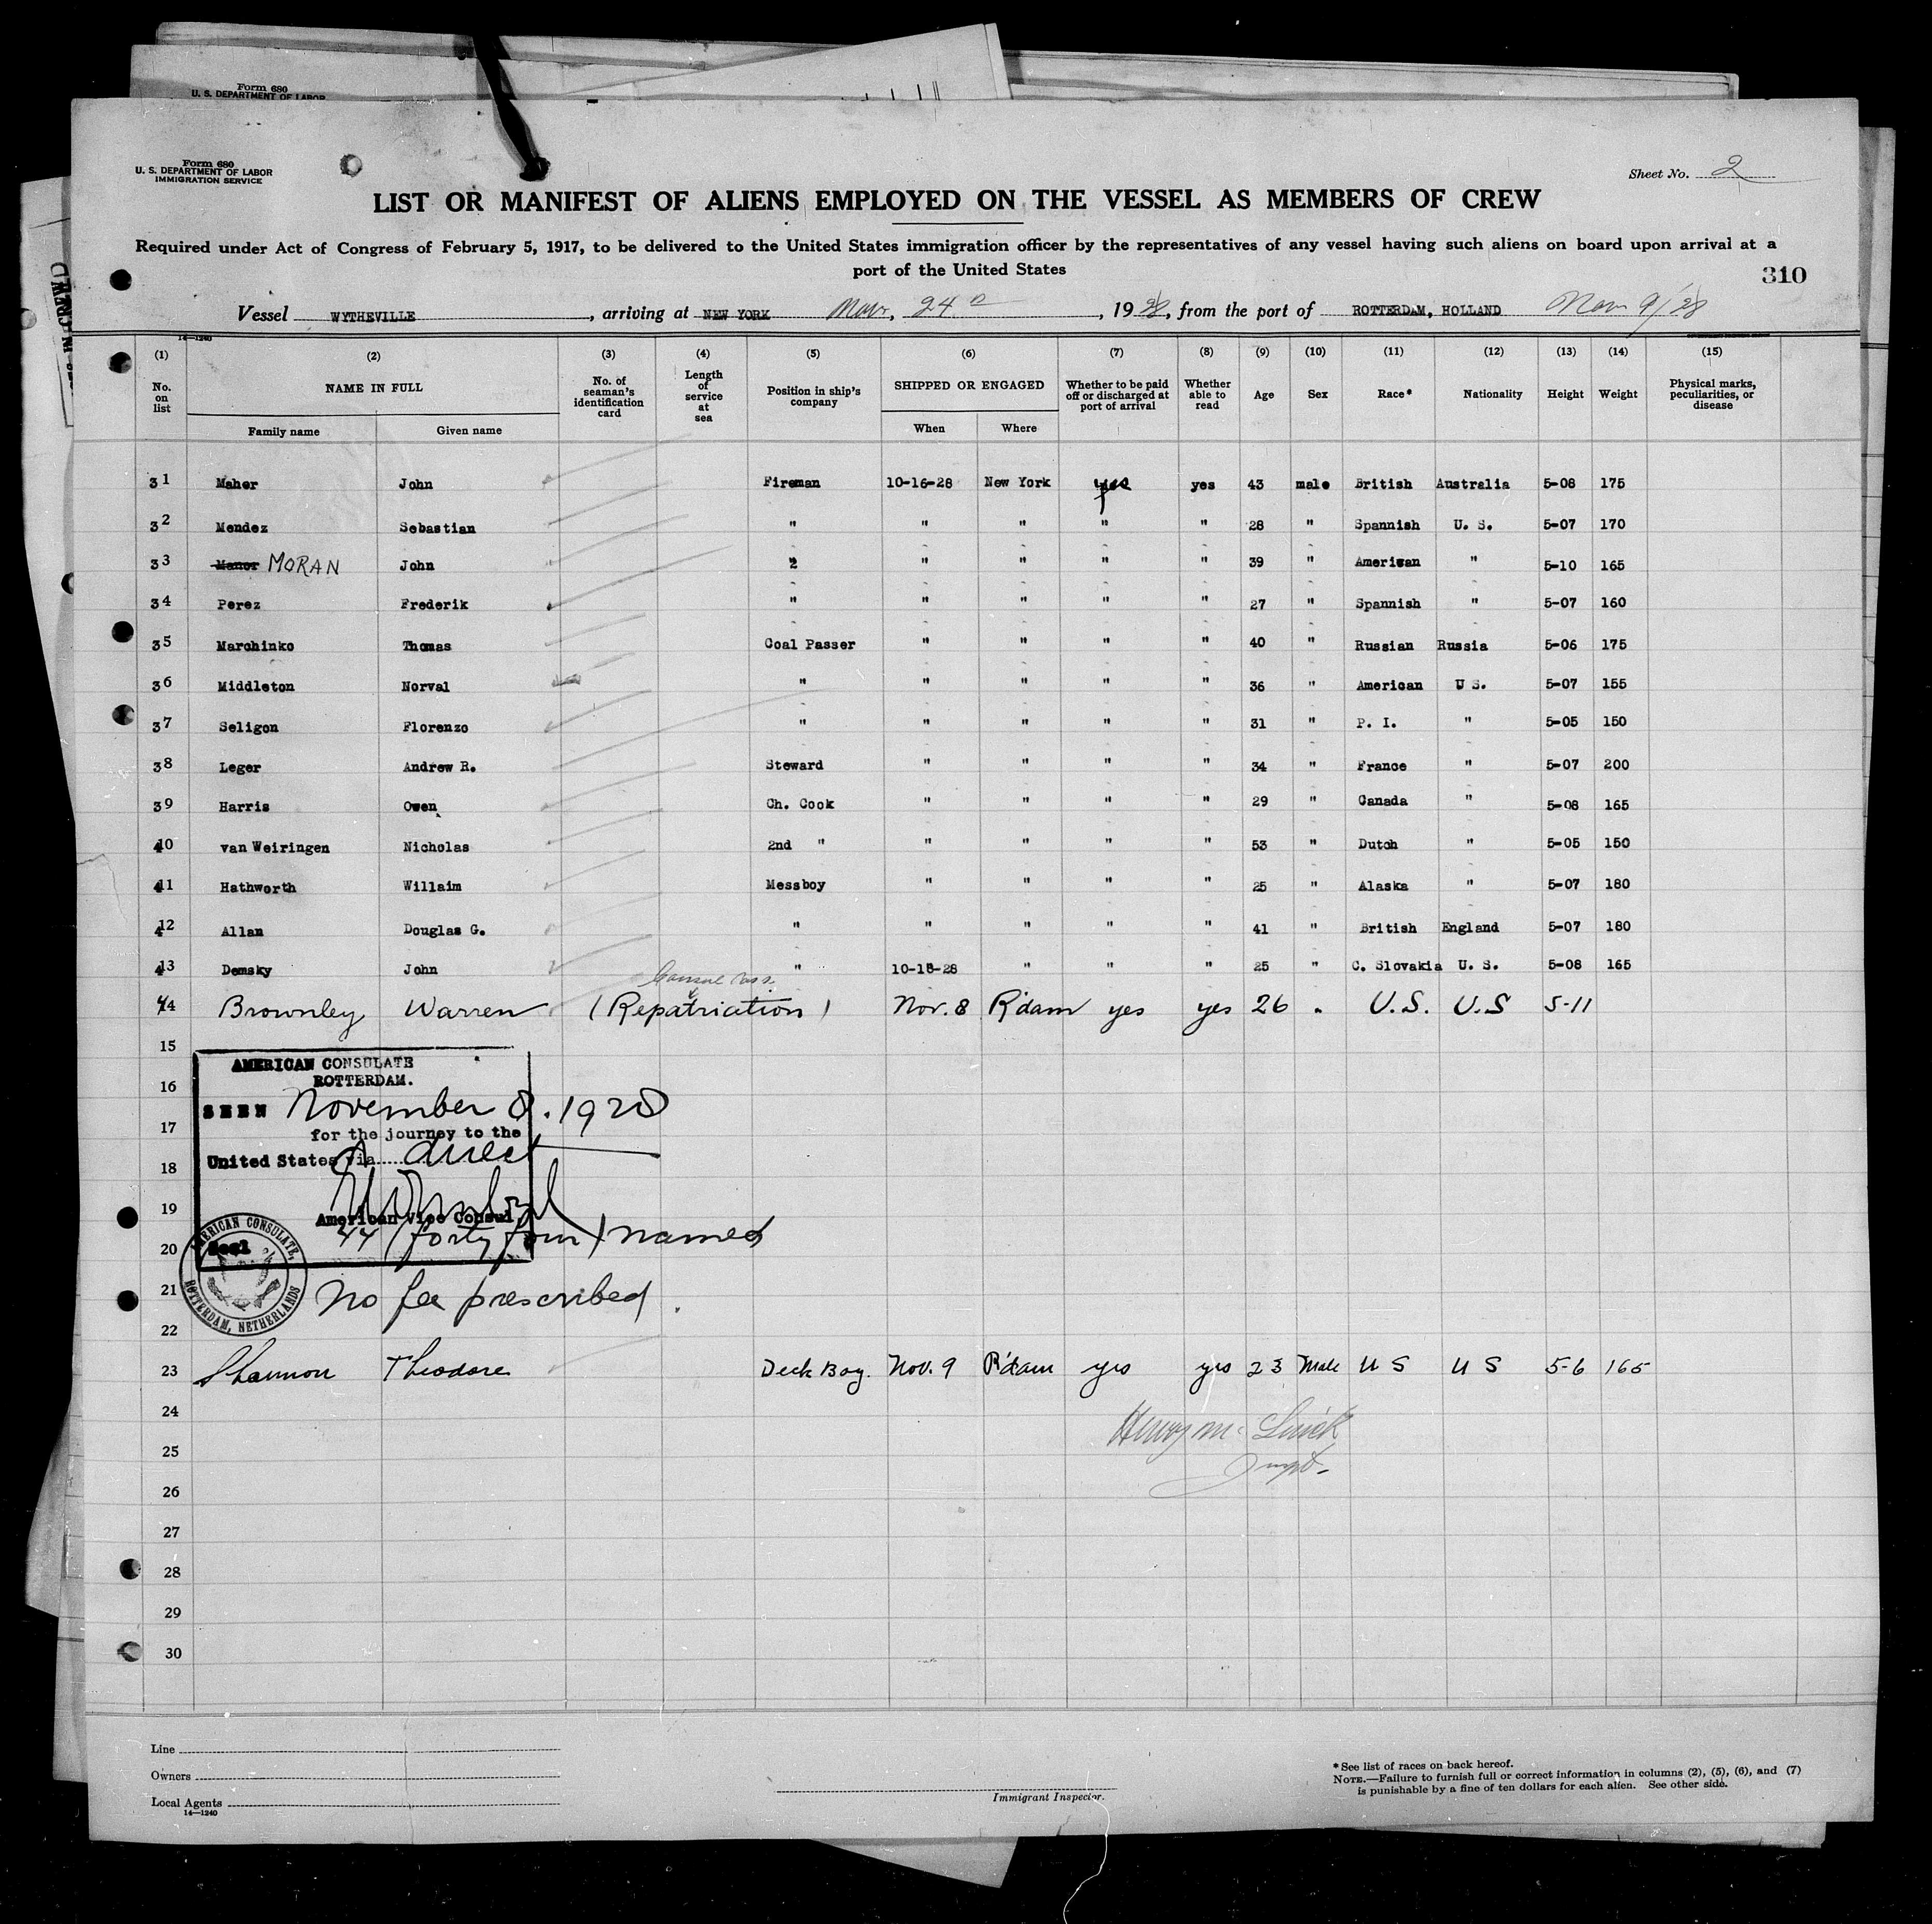 Form 680
U. S. DEPARTMENT OF LABOR
Form 680
U. S. DEPARTMENT OF LABOR
IMMIGRATION SERVICE
Sheet No. 2
LIST OR MANIFEST OF ALIENS EMPLOYED ON THE VESSEL AS MEMBERS OF CREW
Required under Act of Congress of February 5, 1917, to be delivered to the United States immigration officer by the representatives of any vessel having such aliens on board upon arrival at a
port of the United States
310
Vessel WYTHEVILLE, arriving at NEW YORK Nov, 24th, 1928, from the port of ROTTERDAM, HOLLAND Nov 9/28
14—1240
(1) (2) (3) (4) (5) (6) (7) (8) (9) (10) (11) (12) (13) (14) (15)
No. on list NAME IN FULL No. of seaman's identification card Length of service at sea Position in ship's company SHIPPED OR ENGAGED Whether to be paid off or discharged at port of arrival Whether able to read Age Sex Race* Nationality Height Weight Physical marks, peculiarities, or disease
Family name Given name When Where
31 Maher John Fireman 10-16-28 New York yes yes 43 male British Australia 5-08 175
32 Mendez Sebastian " " " " " 28 " Spannish U. S. 5-07 170
33 Manor MORAN John 2 " " " " 39 " American " 5-10 165
34 Perez Frederik " " " " " 27 " Spannish " 5-07 160
35 Marchinko Thomas Coal Passer " " " " 40 " Russian Russia 5-06 175
36 Middleton Norval " " " " " 36 " American U S. 5-07 155
37 Seligon Florenzo " " " " " 31 " P. I. " 5-05 150
38 Leger Andrew R. Steward " " " " 34 " France " 5-07 200
39 Harris Owen Ch. Cook " " " " 29 " Canada " 5-08 165
410 van Weiringen Nicholas 2nd " " " " " 53 " Dutch " 5-05 150
411 Hathworth Willaim Messboy " " " " 25 " Alaska " 5-07 180
412 Allan Douglas G. " " " " " 41 " British England 5-07 180
413 Demsky John " 10-18-28 " " " 25 " C. Slovakia U. S. 5-08 165
Consul Pass.
44 Brownley Warren (Repatriation) Nov. 8 R'dam yes yes 26 " U.S. U.S 5-11
15
AMERICAN CONSULATE
16
ROTTERDAM.
SEEN November 8. 1928
17
for the journey to the
United States via direct
18
19
American Vice Consul
44 (forty four) names
20
Seal
AMERICAN CONSULATE, ROTTERDAM, NETHERLANDS
21 No fee prescribed.
22
23 Shannon Theodore Deck Boy. Nov. 9 R'dam yes yes 23 Male U S U S 5-6 165
24
Henry Mc
25
26
27
28
29
30
Line
Owners
Local Agents
14—1240
Immigrant Inspector.
*See list of races on back hereof.
NOTE.—Failure to furnish full or correct information in columns (2), (5), (6), and (7)
is punishable by a fine of ten dollars for each alien. See other side.